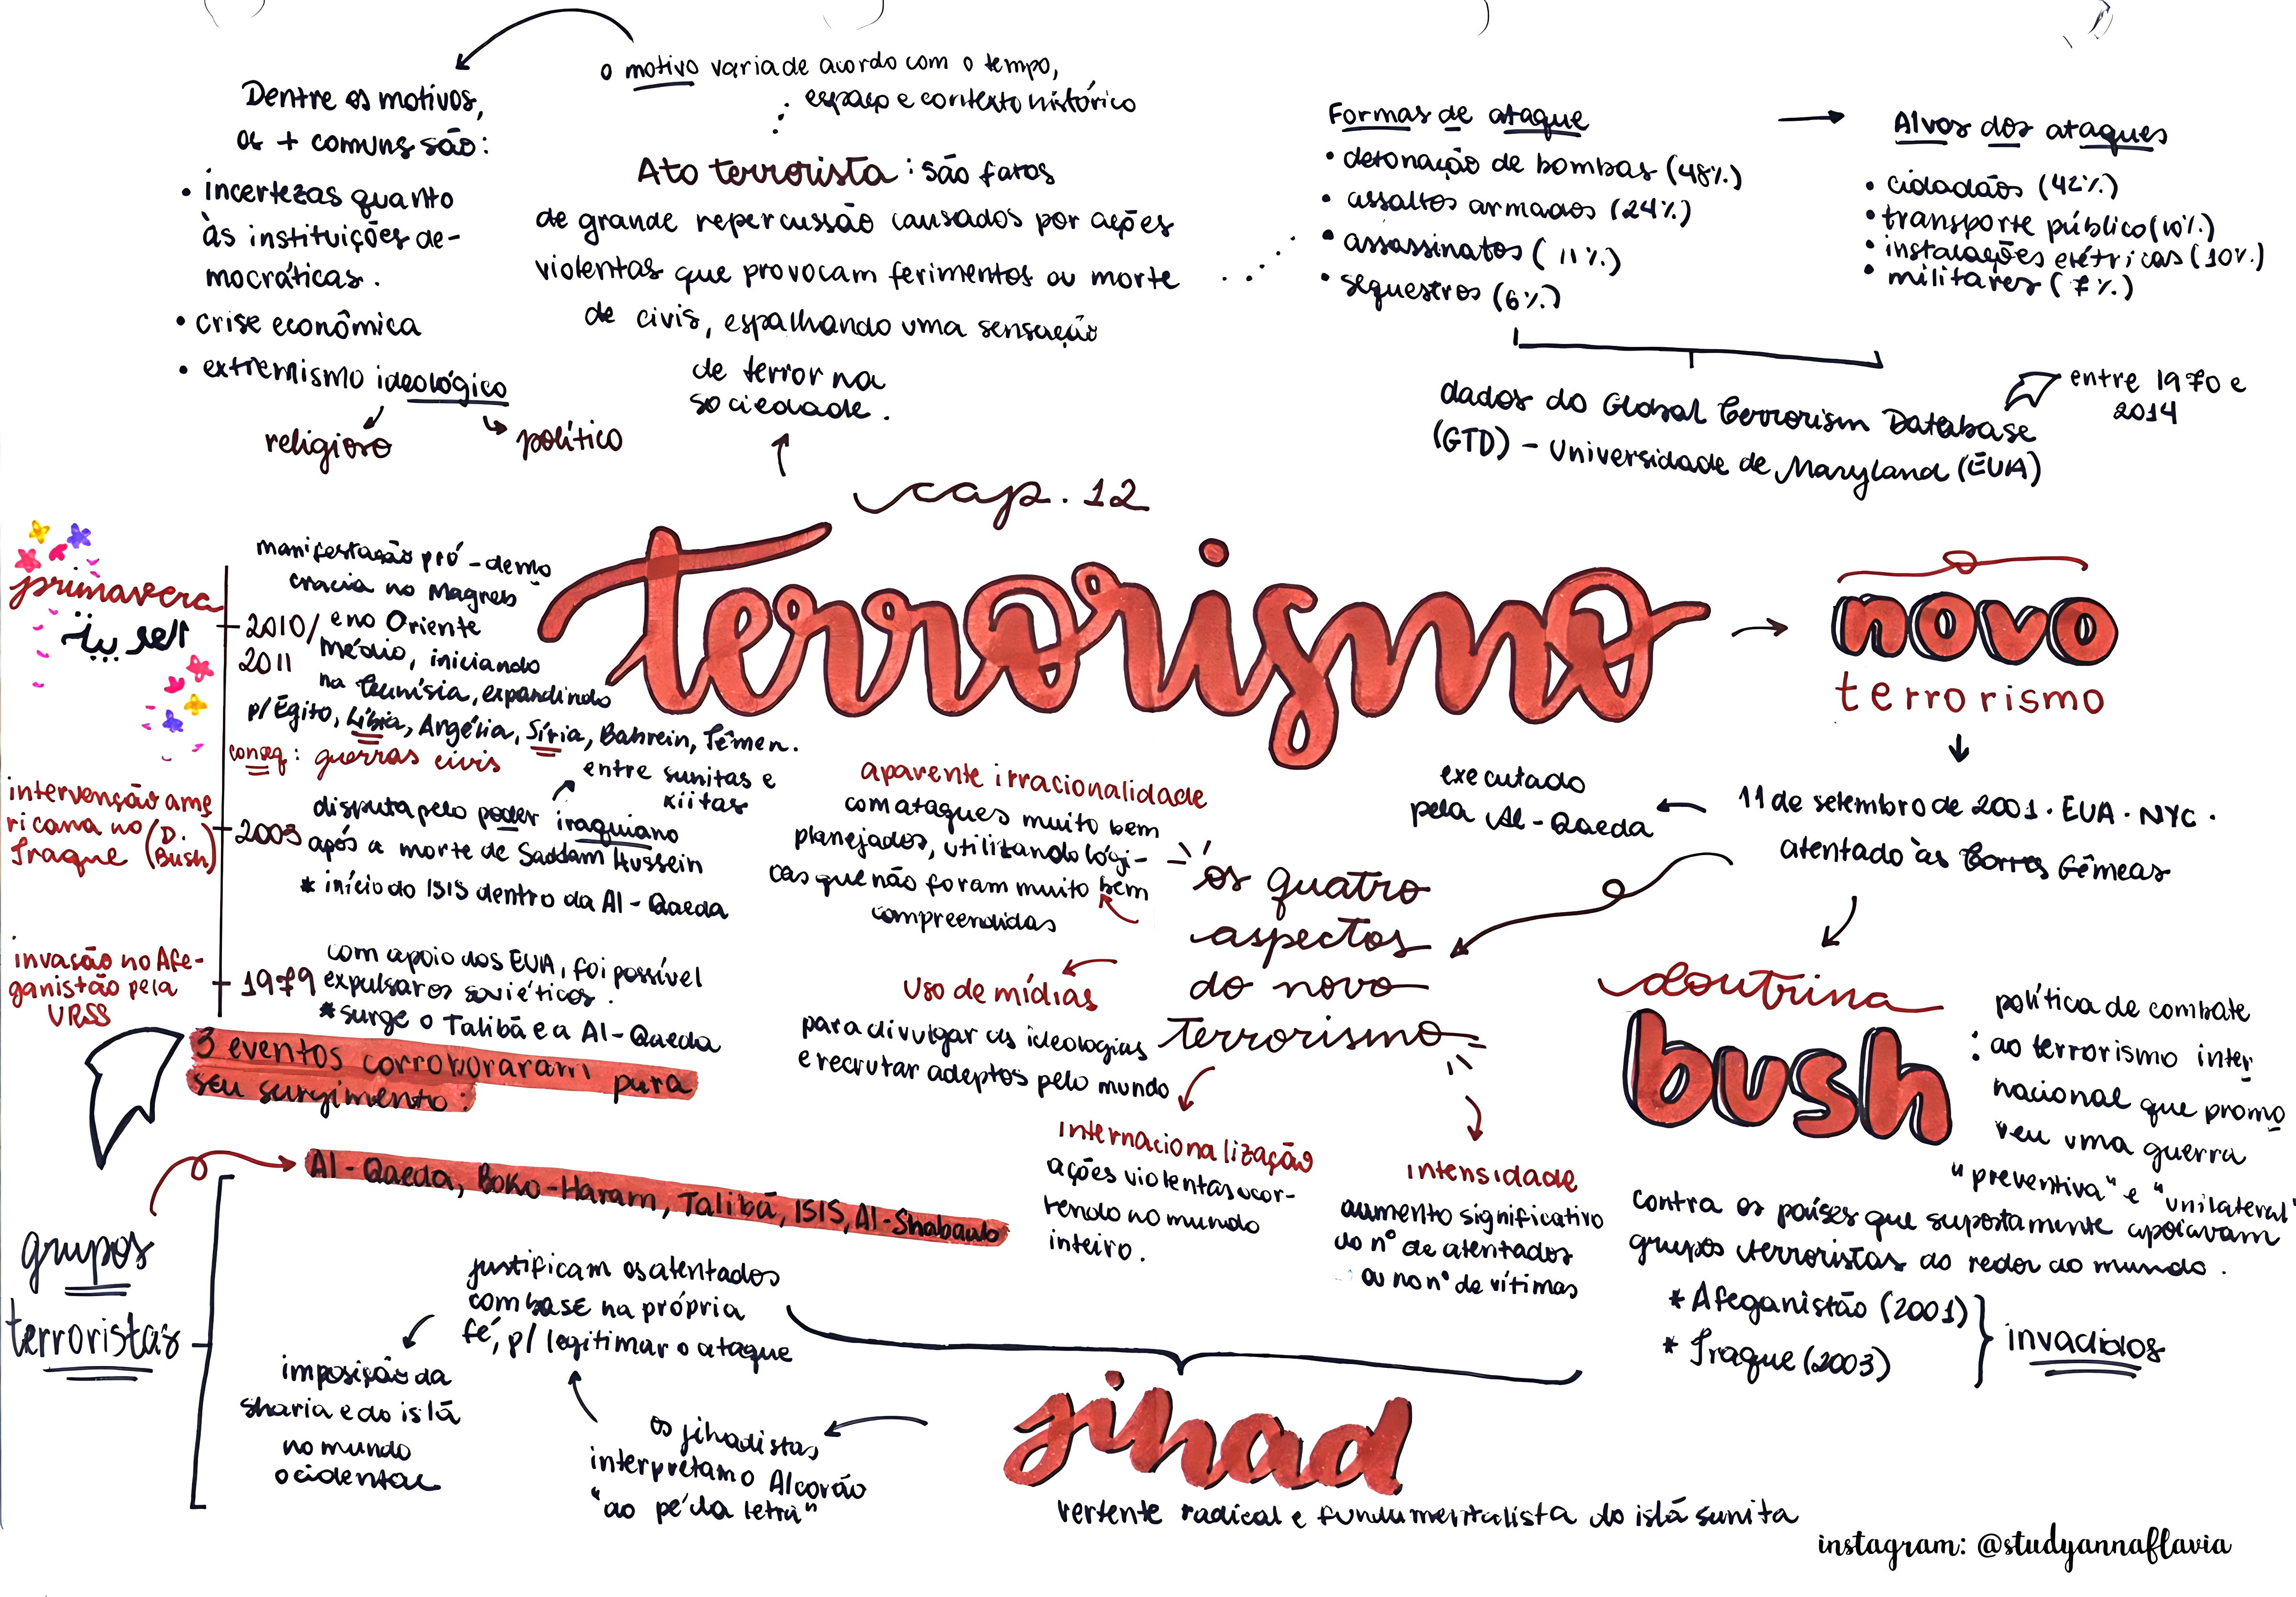 o motivo varia de acordo com o tempo,
espaço e contexto histórico
Dentre os motivos,
os + comuns são:
• incertezas quanto
às instituições de-
mocráticas.
• crise econômica
• extremismo ideológico
religioso
político
Ato terrorista: são fatos
de grande repercussão causados por ações
violentas que provocam ferimentos ou morte
de civis, espalhando uma sensação
de terror na
sociedade.
Formas de ataque
• detonação de bombas (48%)
• assaltos armados (24%)
• assassinatos (11%)
• sequestros (6%)
Alvos dos ataques
• cidadãos (42%)
• transporte público (10%)
• instalações elétricas (10%)
• militares (7%)
dados do Global Terrorism Database
(GTD) - Universidade de Maryland (EUA)
entre 1970 e
2014
cap. 12
terrorismo
novo
terrorismo
11 de setembro de 2001 · EUA · NYC ·
atentado às Torres Gêmeas
executado
pela Al-Qaeda
primavera
manifestação pró-demo
cracia no Magreb
2010/
2011
e no Oriente
Médio, iniciando
na Tunísia, expandindo
p/ Egito, Líbia, Argélia, Síria, Bahrein, Iêmen.
conseq: guerras civis
entre sunitas e
xiitas
intervenção ame
ricana no (D.
Iraque Bush)
2003
disputa pelo poder iraquiano
após a morte de Saddam Hussein
* início do ISIS dentro da Al-Qaeda
invasão no Afe-
ganistão pela
URSS
1979
com apoio dos EUA, foi possível
expulsar os soviéticos.
* surge o Talibã e a Al-Qaeda
3 eventos corroboraram para
seu surgimento:
os quatro
aspectos
do novo
terrorismo
aparente irracionalidade
com ataques muito bem
planejados, utilizando lógi-
cas que não foram muito bem
compreendidas
uso de mídias
para divulgar as ideologias
e recrutar adeptos pelo mundo
internacionalização
ações violentas ocor-
rendo no mundo
inteiro.
intensidade
aumento significativo
do nº de atentados
ou no nº de vítimas
doutrina
bush
política de combate
: ao terrorismo inter
nacional que promo
veu uma guerra
"preventiva" e "unilateral"
contra os países que supostamente apoiavam
grupos terroristas ao redor do mundo.
* Afeganistão (2001)
* Iraque (2003)
invadidos
grupos
terroristas
Al-Qaeda, Boko-Haram, Talibã, ISIS, Al-Shabaab
justificam os atentados
com base na própria
fé, p/ legitimar o ataque
imposição da
sharia e do islã
no mundo
ocidental
os jihadistas
interpretam o Alcorão
"ao pé da letra"
jihad
vertente radical e fundamentalista do islã sunita
instagram: @studyannaflavia